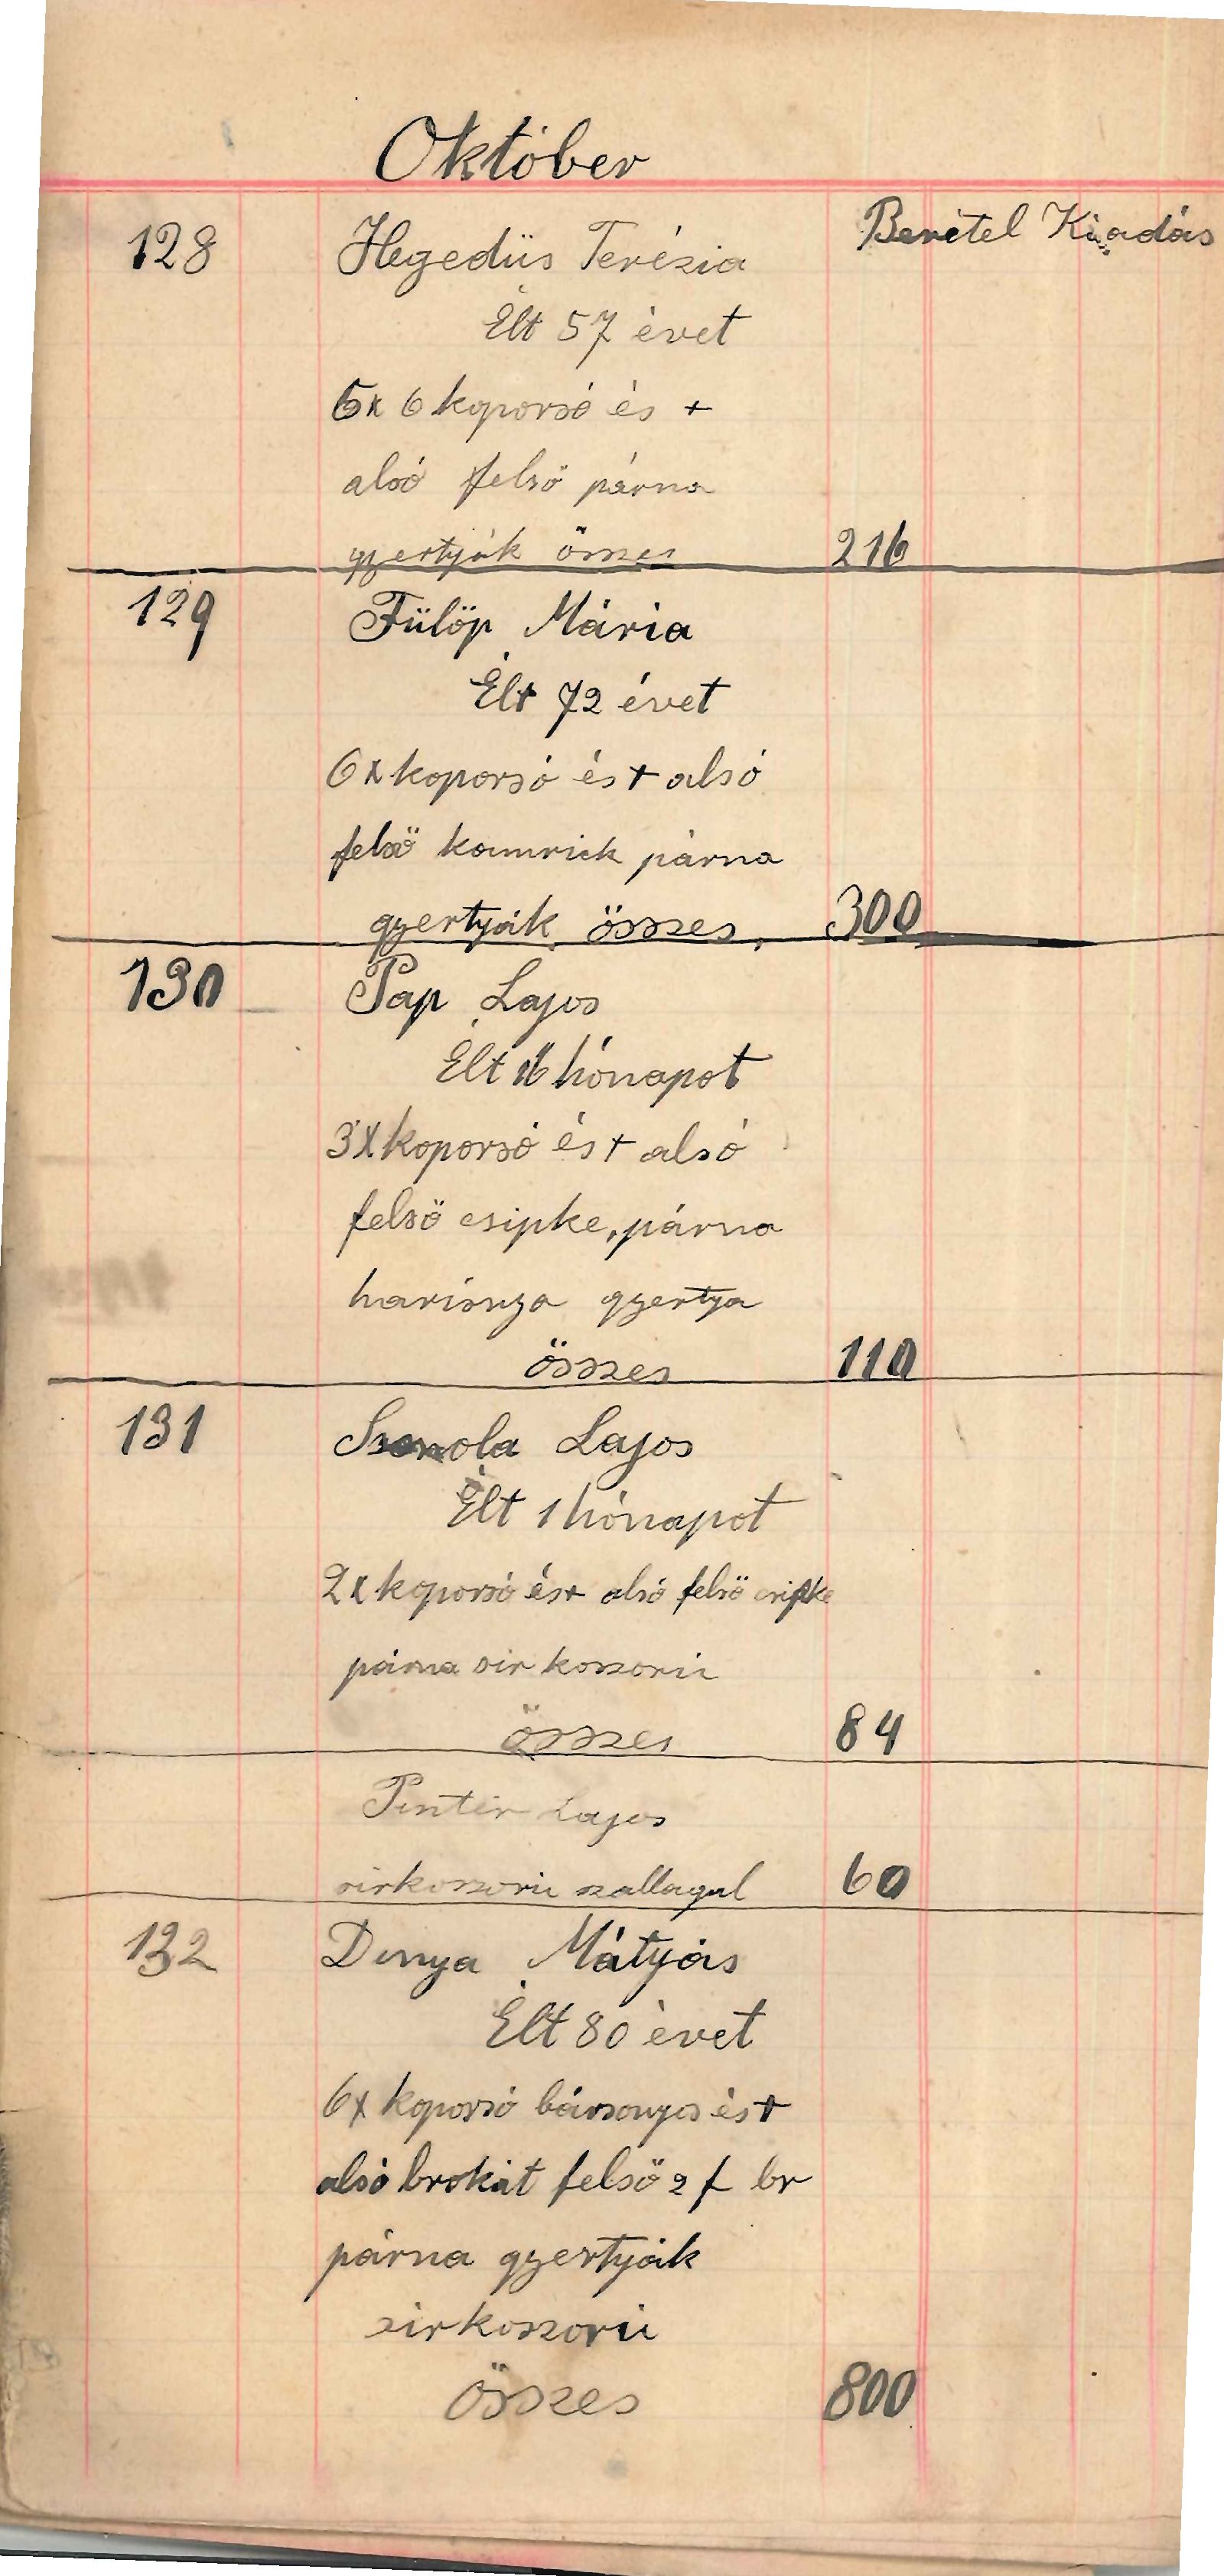 Október
Bevétel Kiadás
128 Hegedüs Terézia
Élt 57 évet
6x6 koporsó és +
alsó felső párna
gyertyák összes 216
129 Fülöp Mária
Élt 72 évet
6x koporsó és + alsó
felső kamrick párna
gyertyák összes, 300
130 Pap Lajos
Élt hónapot
3x koporsó és + alsó
felső csipke, párna
harisnya gyertya
összes 110
131 Lajos
Élt 1 hónapot
2x koporsó és + alsó felső csipke
párna sir koszorú
összes 84
Pintér Lajos
sirkoszorú szallagal 60
132 Dinya Mátyás
Élt 80 évet
6x koporsó bársonyos és +
alsó brokát felső 2 f br
párna gyertyák
sirkoszorú
összes 800